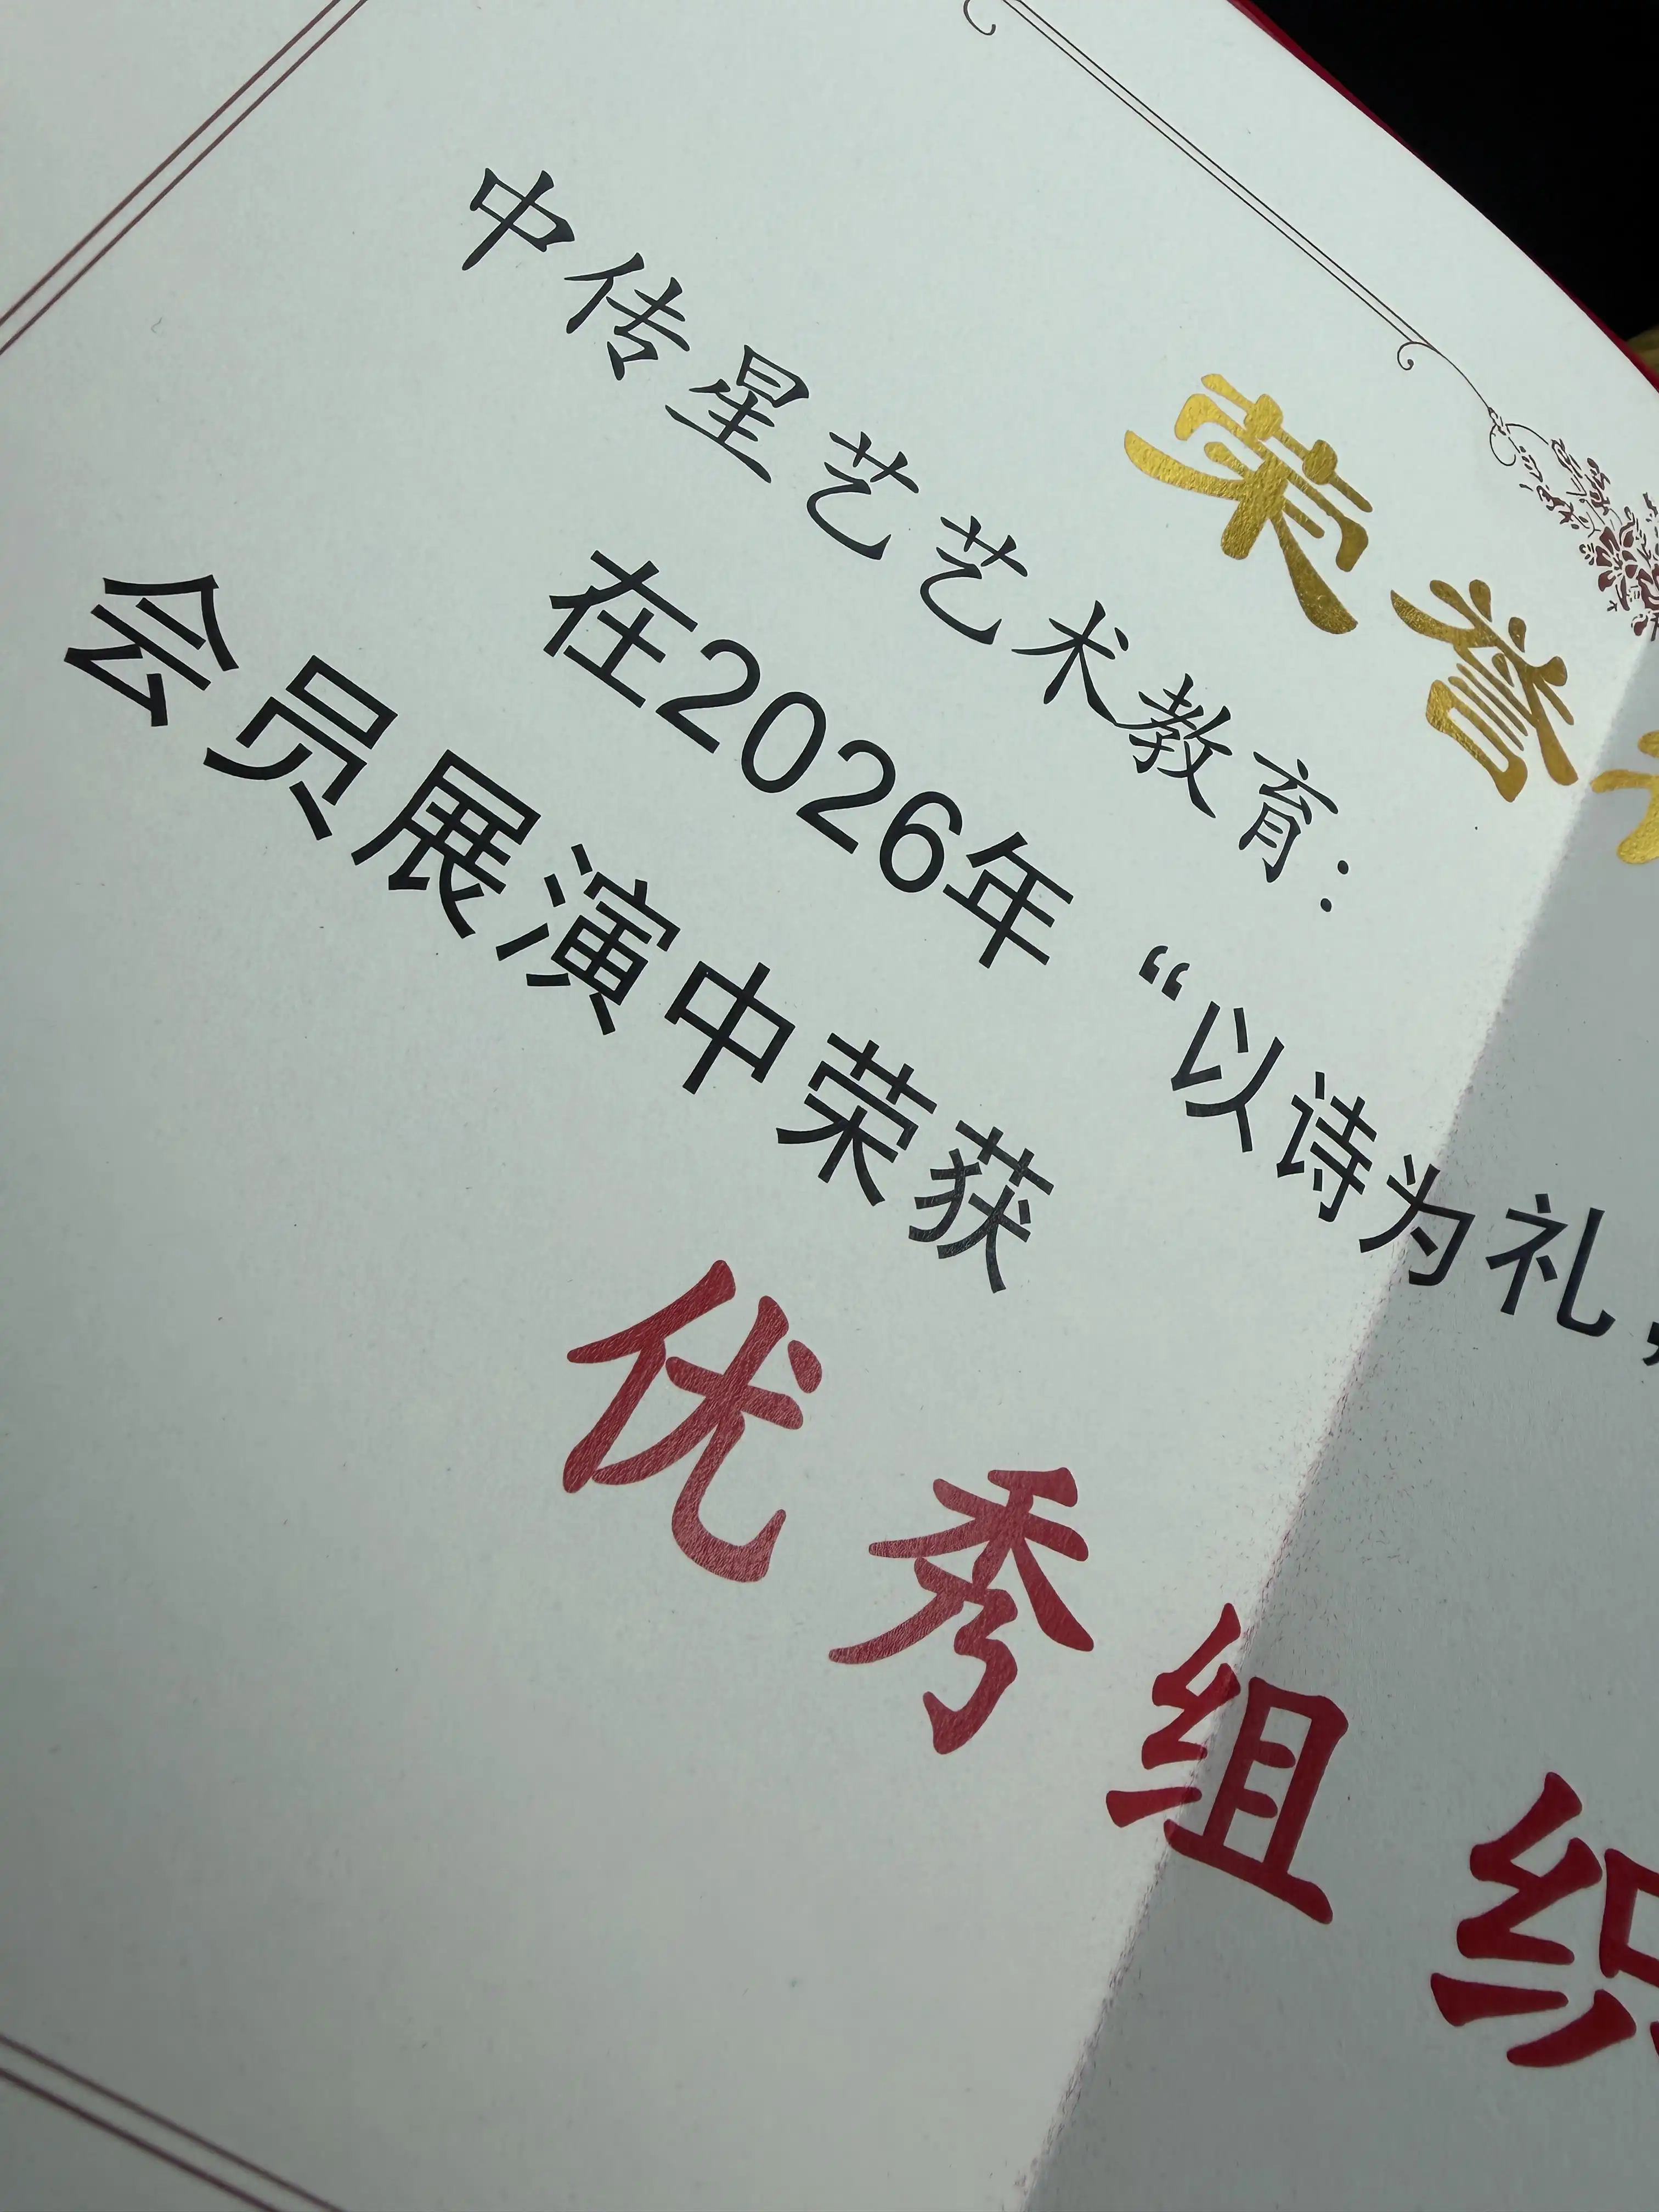 荣誉
中传星艺艺术教育：
在2026年“以诗为礼，
会员展演中荣获
优秀组织